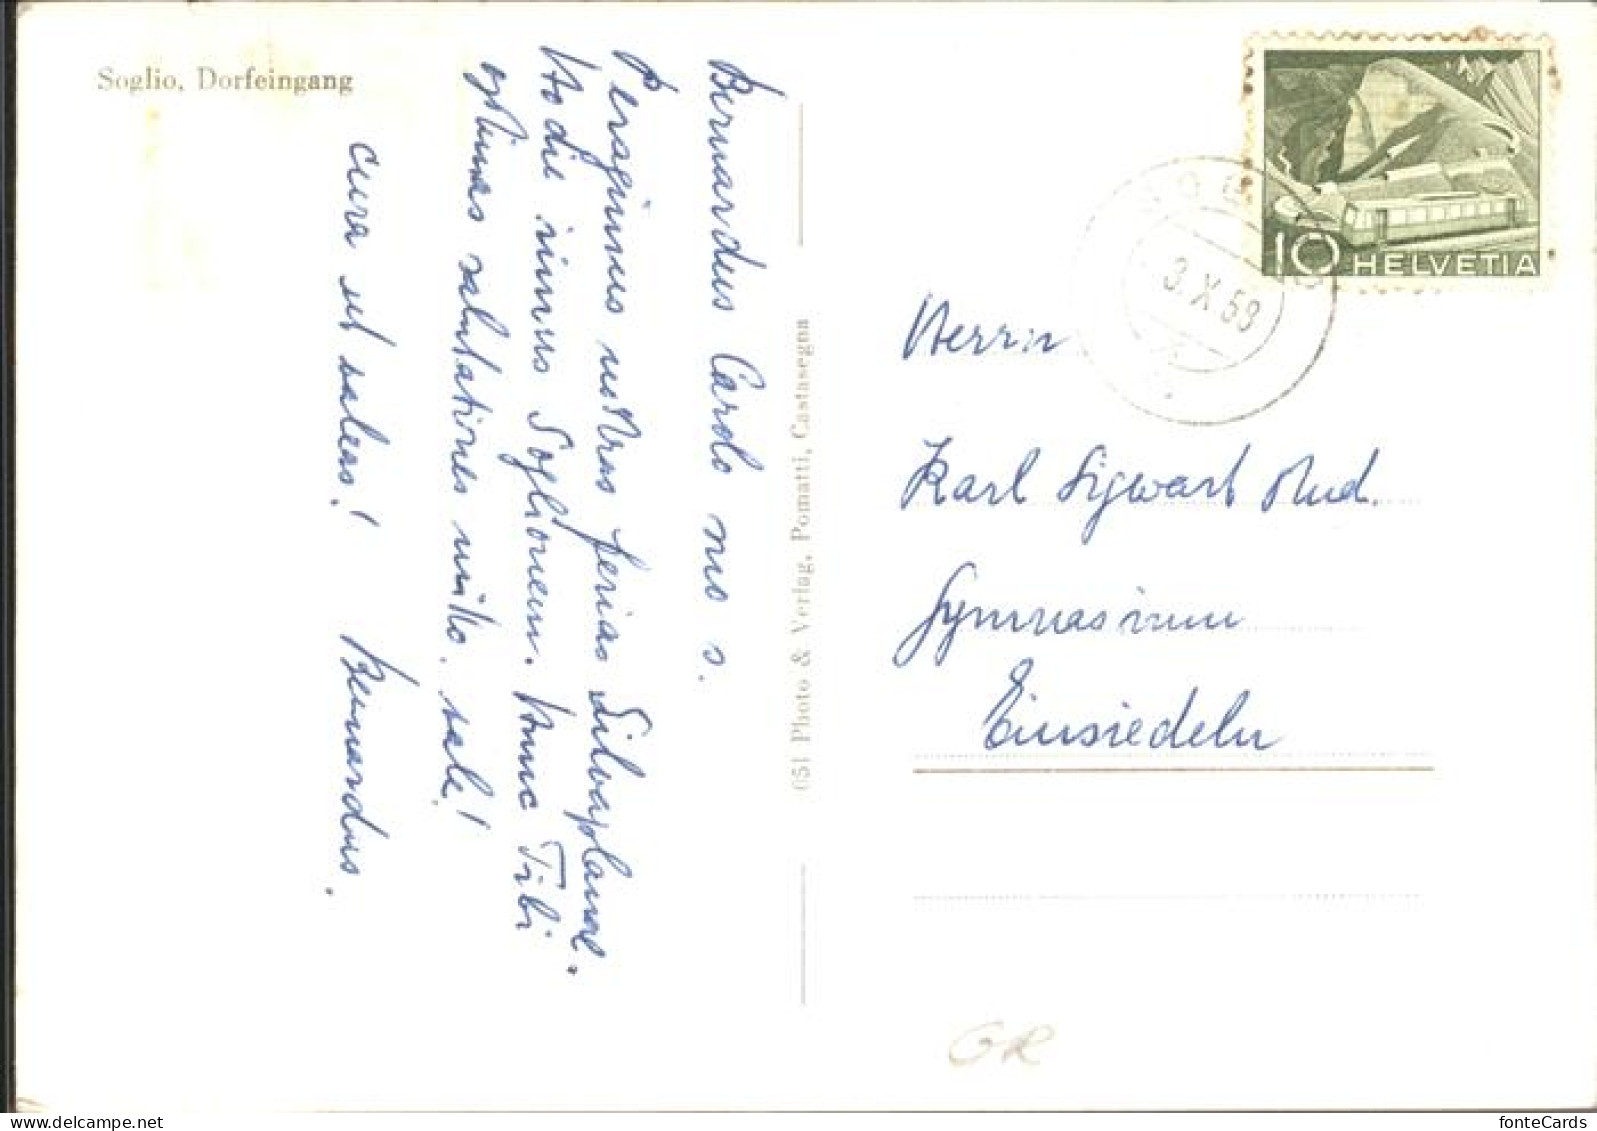 Soglio, Dorfeingang
Bernardus Carolo suo s.
Peragimus nostras ferias Silvaplanae.
Hodie imus Soglionem. Hinc Tibi
optimas salutationes mitto. Vale!
cura ut valeas! Bernardus.
651 Photo & Verlag, Pomatti, Castasegna
HELVETIA
10
SOGLIO
3.X.58
Herrn
Karl Sigwart stud.
Gymnasium
Einsiedeln
GR
fonteCards